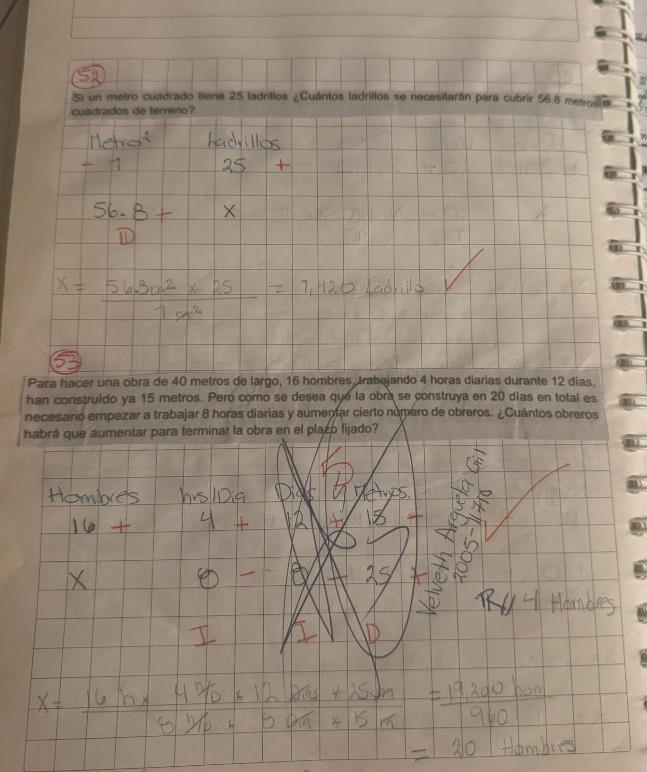 52
Si un metro cuadrado tiene 25 ladrillos ¿Cuántos ladrillos se necesitarán para cubrir 56.8 metros
cuadrados de terreno?
Metro² Ladrillos
- 1 25 +
56.8 + X
D
X = 56.8m² x 25 = 1,420 Ladrillo
1 m²
53
Para hacer una obra de 40 metros de largo, 16 hombres, trabajando 4 horas diarias durante 12 días,
han construido ya 15 metros. Pero como se desea que la obra se construya en 20 días en total es
necesario empezar a trabajar 8 horas diarias y aumentar cierto número de obreros. ¿Cuántos obreros
habrá que aumentar para terminar la obra en el plazo fijado?
Hombres hrs/Dia Dias Metros
16 + 4 + 12 + 15 -
X 8 - 8 - 25 +
I I D
Velveth Argueta Gil
R// 4 Hombres
X = 16 h x 4 x 12 x 25 m = 19,200 hom
8 x 8 x 15 m 960
= 20 Hombres